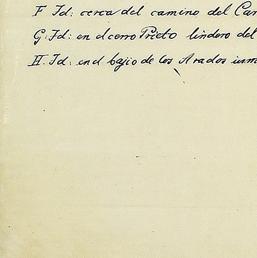 F Id: cerca del camino del Car
G. Id: en el cerro Prieto lindero del
H. Id: en el bajio de los Arados inm